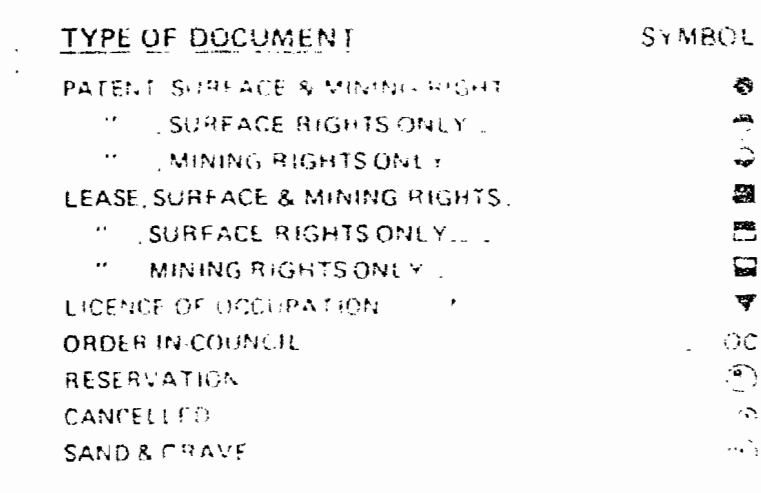 TYPE OF DOCUMENT SYMBOL
PATENT, SURFACE & MINING RIGHT
" , SURFACE RIGHTS ONLY
" , MINING RIGHTS ONLY
LEASE, SURFACE & MINING RIGHTS
" , SURFACE RIGHTS ONLY
" MINING RIGHTS ONLY
LICENCE OF OCCUPATION
ORDER-IN-COUNCIL OC
RESERVATION
CANCELLED
SAND & GRAVE